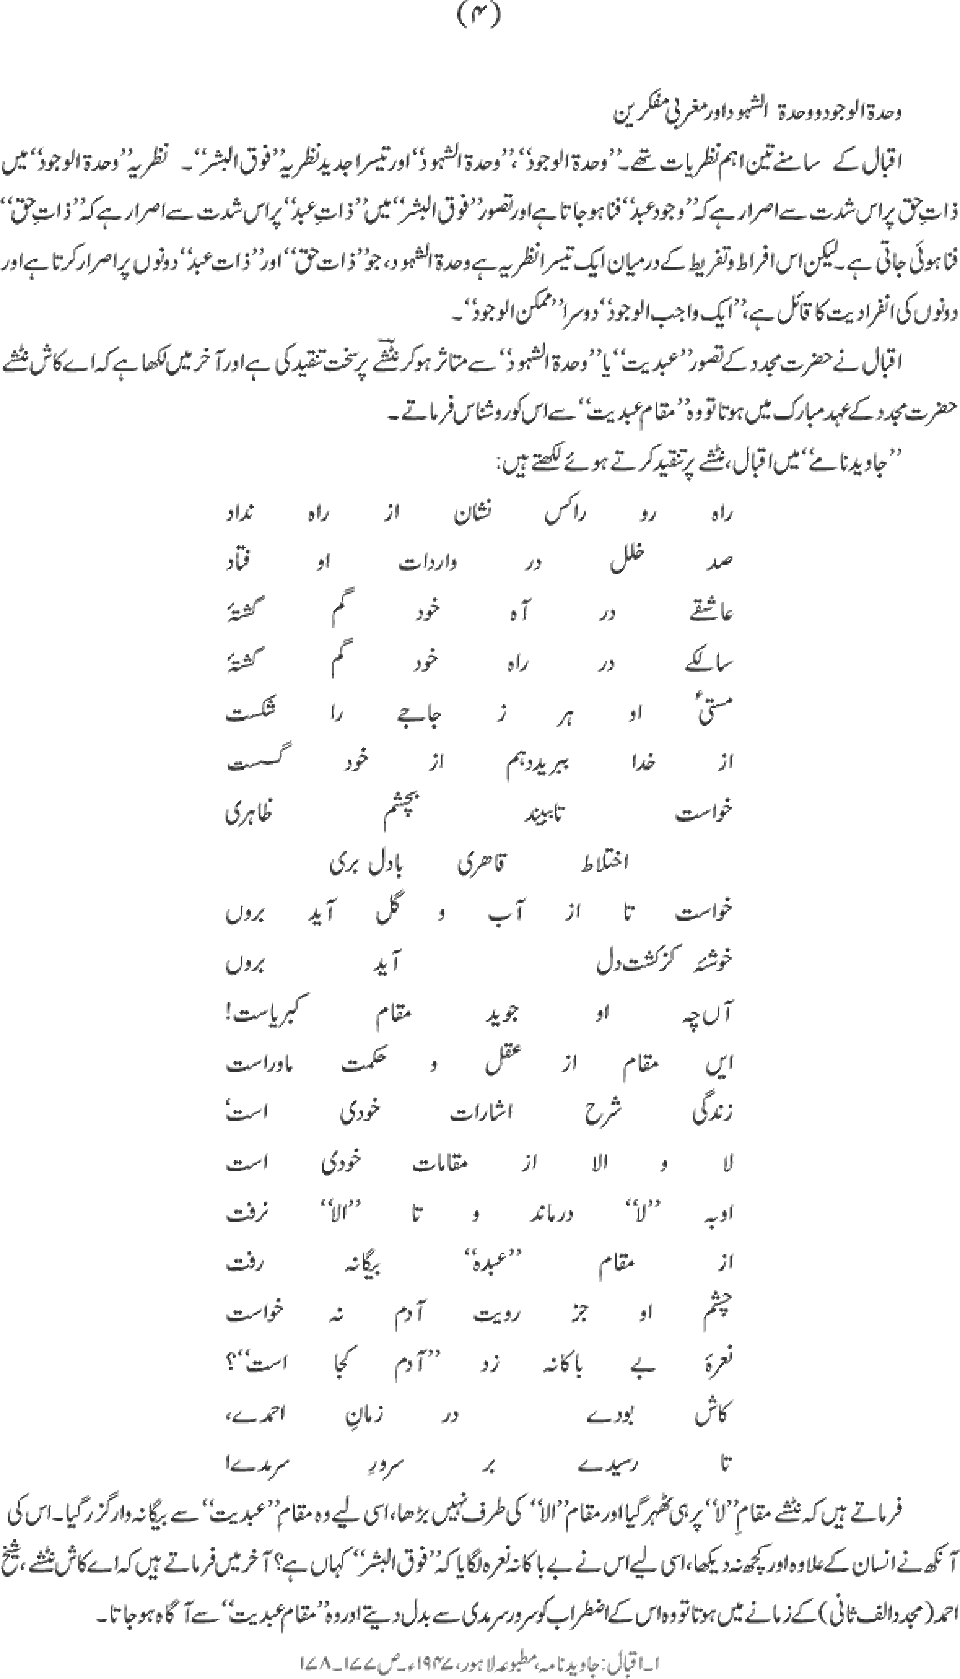 (۴)
وحدۃ الوجود و وحدۃ الشہود اور مغربی مفکرین
اقبال کے سامنے تین اہم نظریات تھے۔ ’’وحدۃ الوجود‘‘، ’’وحدۃ الشہود‘‘ اور تیسرا جدید نظریہ ’’فوق البشر‘‘۔ نظریہ ’’وحدۃ الوجود‘‘ میں
ذاتِ حق پر اس شدت سے اصرار ہے کہ ’’وجود عبد‘‘ فنا ہو جاتا ہے اور تصور ’’فوق البشر‘‘ میں ’’ذاتِ عبد‘‘ پر اس شدت سے اصرار ہے کہ ’’ذاتِ حق‘‘
فنا ہوئی جاتی ہے۔ لیکن اس افراط و تفریط کے درمیان ایک تیسرا نظریہ ہے وحدۃ الشہود، جو ’’ذات حق‘‘ اور ’’ذات عبد‘‘ دونوں پر اصرار کرتا ہے اور
دونوں کی انفرادیت کا قائل ہے، ’’ایک واجب الوجود‘‘ دوسرا ’’ممکن الوجود‘‘۔
اقبال نے حضرت مجدد کے تصور ’’عبدیت‘‘ یا ’’وحدۃ الشہود‘‘ سے متاثر ہو کر نٹشے پر سخت تنقید کی ہے اور آخر میں لکھا ہے کہ اے کاش نٹشے
حضرت مجدد کے عہد مبارک میں ہوتا تو وہ ’’مقام عبدیت‘‘ سے اس کو روشناس فرماتے۔
’’جاوید نامے‘‘ میں اقبال، نٹشے پر تنقید کرتے ہوئے لکھتے ہیں:
راہ رو را کس نشان از راہ نداد
صد خلل در واردات او فتاد
عاشقے در آہ خود گم گشتۂ
سالکے در راہ خود گم گشتۂ
مستیٔ او ہر ز جاجے را شکست
از خدا ببرید دہم از خود گسست
خواست تا ببیند بچشم ظاہری
اختلاط قاھری بادل بری
خواست تا از آب و گل آید بروں
خوشۂ کز کشت دل آید بروں
آں چہ او جوید مقام کبریاست!
ایں مقام از عقل و حکمت ماوراست
زندگی شرح اشارات خودی است‘
لا و الا از مقامات خودی است
اوبہ ’’لا‘‘ درماند و تا ’’الا‘‘ نرفت
از مقام ’’عبدہ‘‘ بیگانہ رفت
چشم او جز رویت آدم نہ خواست
نعرۂ بے باکانہ زد ’’آدم کجا است‘‘؟
کاش بودے در زمانِ احمدے،
تا رسیدے بر سرورِ سرمدے!
فرماتے ہیں کہ نٹشے مقامِ ’’لا‘‘ پر ہی ٹھہر گیا اور مقام ’’الا‘‘ کی طرف نہیں بڑھا، اسی لیے وہ مقامِ ’’عبدیت‘‘ سے بیگانہ وار گزر گیا۔ اس کی
آنکھ نے انسان کے علاوہ اور کچھ نہ دیکھا، اسی لیے اس نے بے باکانہ نعرہ لگایا کہ ’’فوق البشر‘‘ کہاں ہے؟ آخر میں فرماتے ہیں کہ اے کاش نٹشے، شیخ
احمد (مجدد الف ثانی) کے زمانے میں ہوتا تو وہ اس کے اضطراب کو سرور سرمدی سے بدل دیتے اور وہ ’’مقام عبدیت‘‘ سے آگاہ ہو جاتا۔
۱۔ اقبال: جاوید نامہ، مطبوعہ لاہور، ۱۹۴۷ء۔ ص ۱۷۷۔۱۷۸